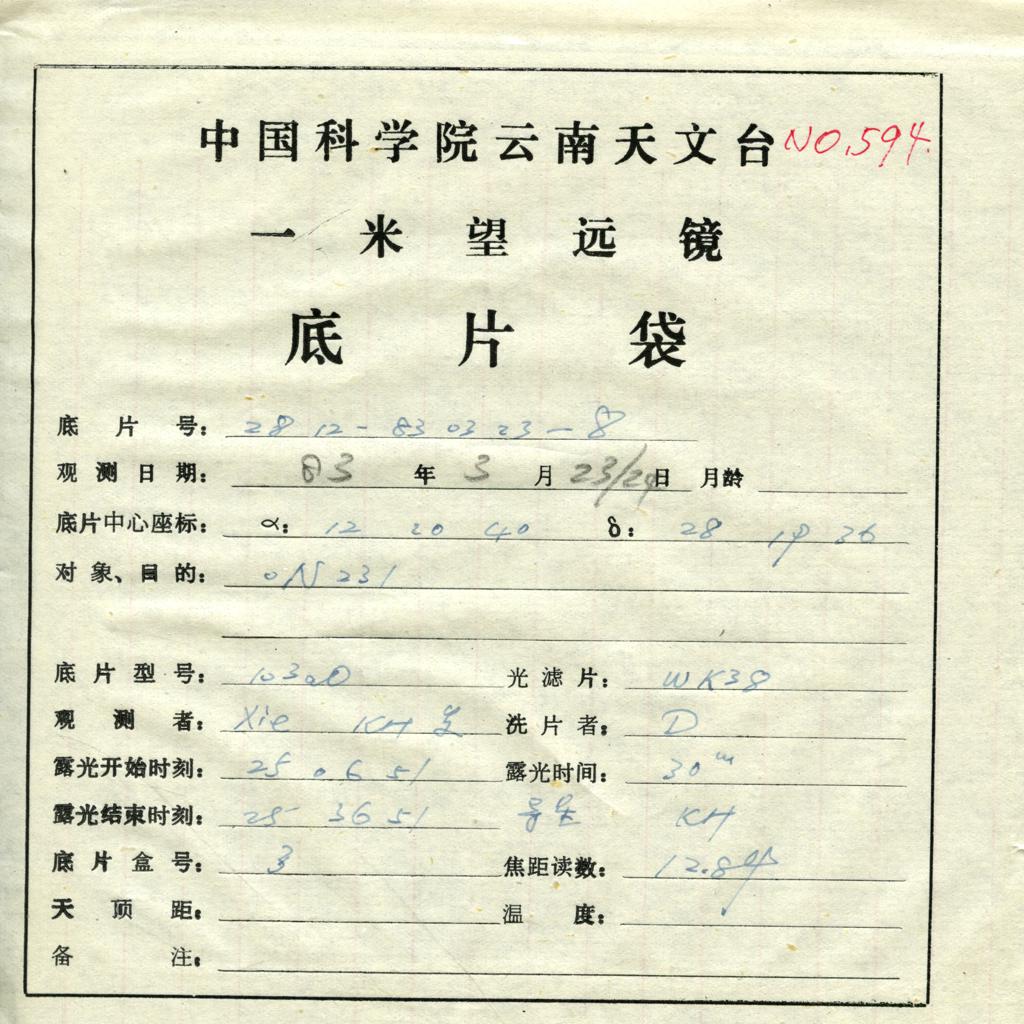 中国科学院云南天文台 NO.594.
一米望远镜
底片袋
底片号: 2812-830323-8
观测日期: 83 年 3 月 23/24 日 月龄
底片中心座标: α: 12 20 40 δ: 28 19 36
对象、目的: ON 231
底片型号: 103aO 光滤片: WK38
观测者: Xie KH 洗片者: D
露光开始时刻: 25 06 51 露光时间: 30m
露光结束时刻: 25 36 51 导星 KH
底片盒号: 3 焦距读数:
天顶距: 温度:
备注: